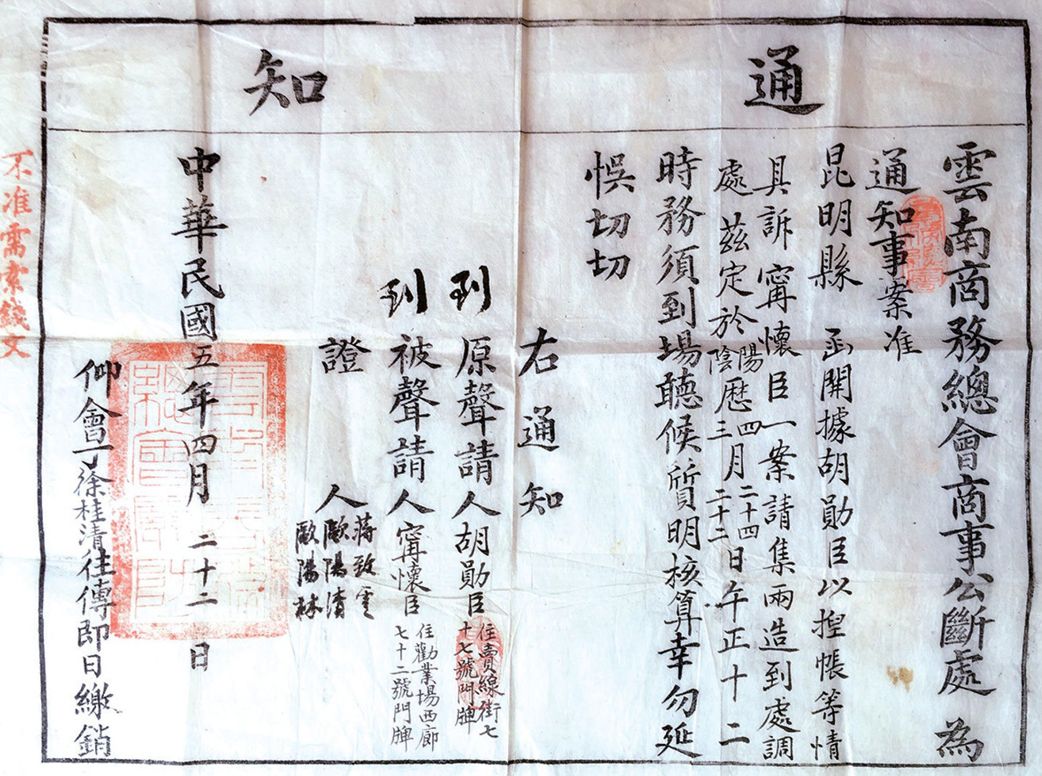 通知
雲南商務總會商事公斷處 為
通知事案准
昆明縣 函開據胡勛臣以捏帳等情
具訴甯懷臣一案請集兩造到處調
處 茲定於陽陰歷四三月二十四二十二日午正十二
時務須到場聽候質明核算幸勿延
悞切切
右通知
到 原聲請人胡勛臣 住賣線街七十七號門牌
到 被聲請人甯懷臣 住勸業場西廊七十二號門牌
證人 蔣致雲 歐陽清 歐陽林
中華民國五年四月二十二日
仰會丁徐桂清往傳即日繳銷
不准需索錢文